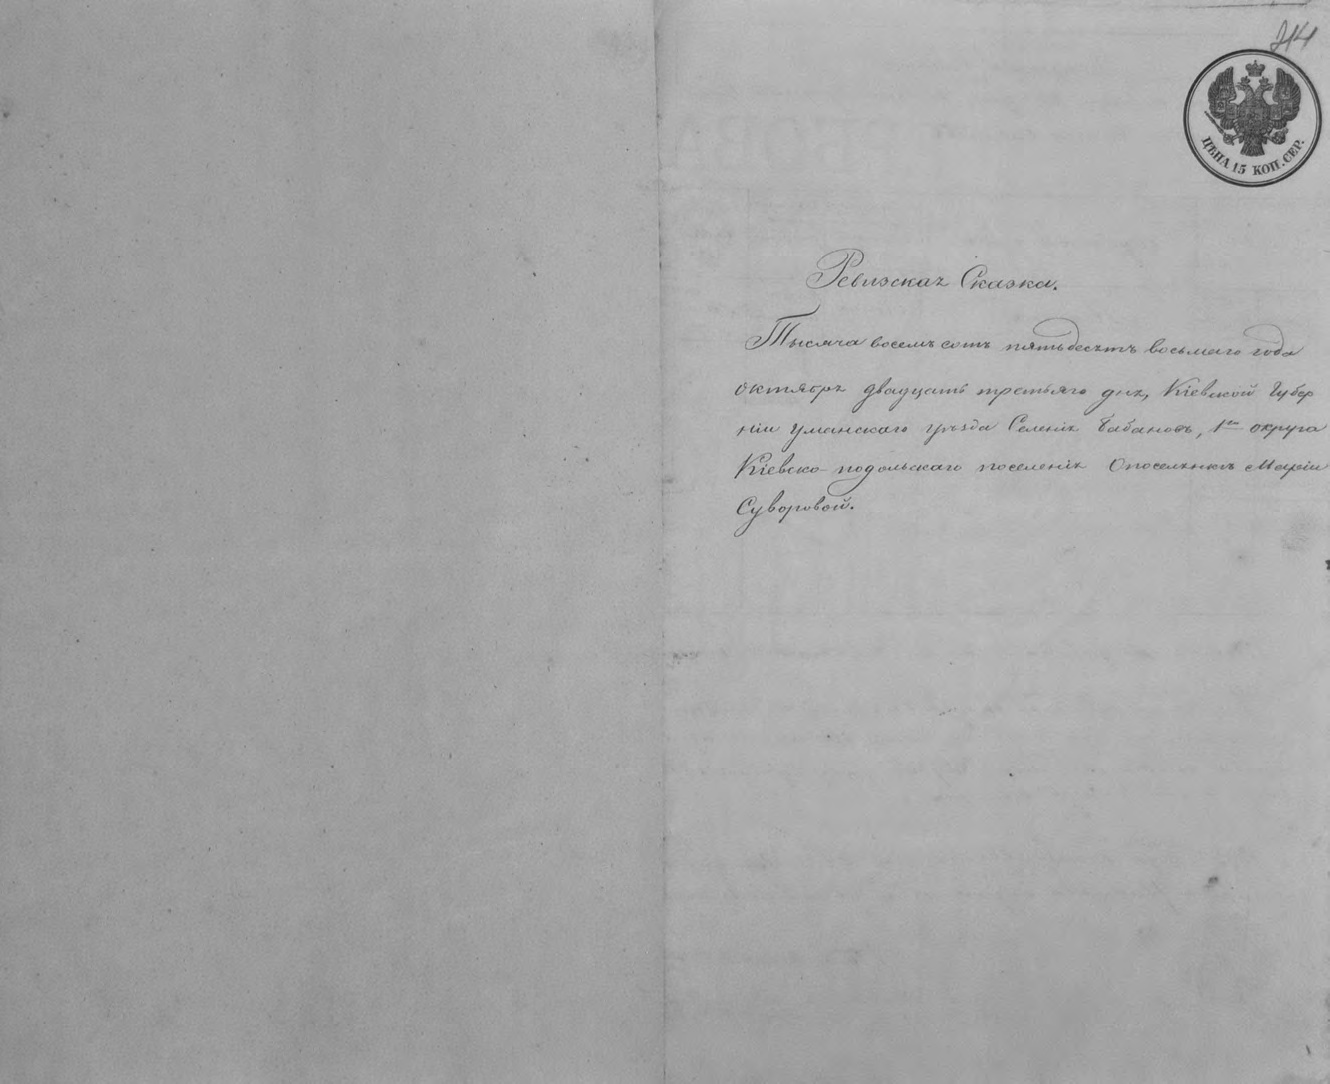 214
ЦѢНА 15 КОП. СЕР.
Ревизская Сказка.
Тысяча восемь сотъ пятьдесятъ восьмаго года
октября двадцать третьяго дня, Кіевской Губер
ніи Уманскаго уѣзда Селенія Бабановъ, 1го округа
Кіевско-подольскаго поселенія О поселянкѣ Маріи
Суворовой.